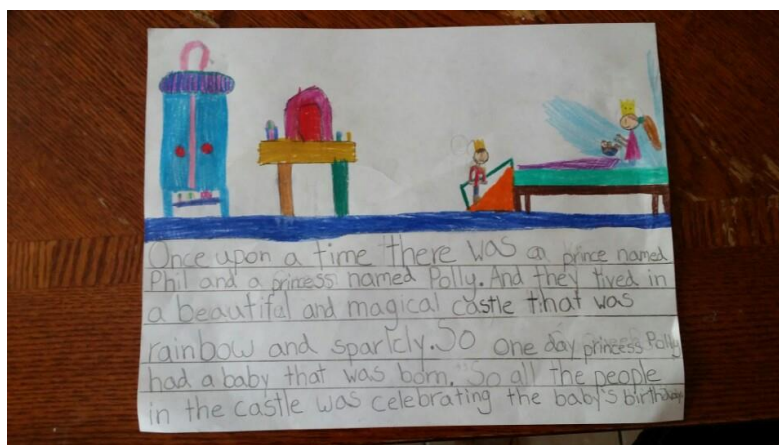 Once upon a time there was a prince named
Phil and a princess named Polly. And they lived in
a beautiful and magical castle that was
rainbow and sparkly. So one day princess Polly
had a baby that was born. So all the people
in the castle was celebrating the baby's birthday